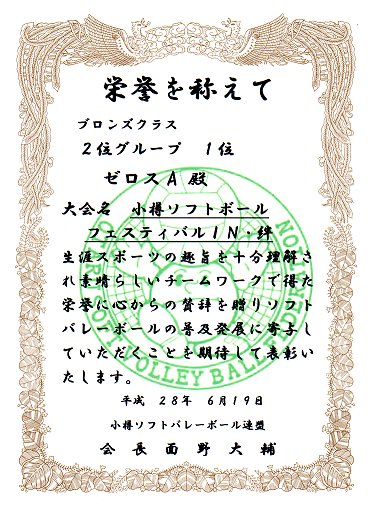 栄誉を称えて
ブロンズクラス
２位グループ　１位
ゼロスＡ 殿
大会名　小樽ソフトボール
フェスティバルＩＮ・絆
生涯スポーツの趣旨を十分理解さ
れ素晴らしいチームワークで得た
栄誉に心からの賛辞を贈りソフト
バレーボールの普及発展に寄与し
ていただくことを期待して表彰い
たします。
平成　２８年　６月１９日
小樽ソフトバレーボール連盟
会長 面野大輔